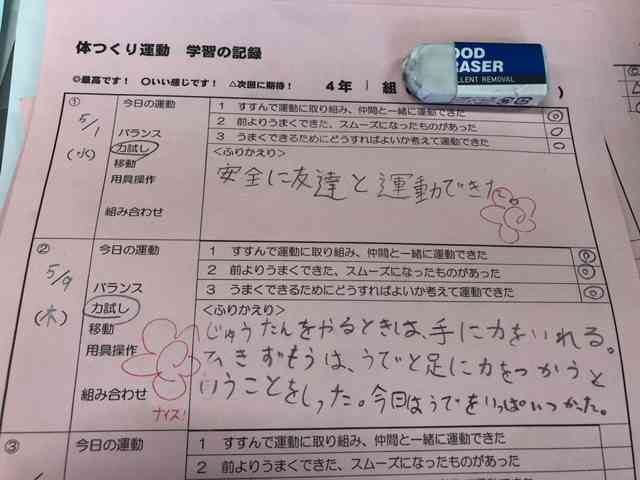 体つくり運動 学習の記録
◎最高です! ○いい感じです! △次回に期待! 4年 1 組
OOD
RASER
LLENT REMOVAL
)
① 今日の運動 1 すすんで運動に取り組み、仲間と一緒に運動できた ◎
5/1 2 前よりうまくできた、スムーズになったものがあった ○
バランス 3 うまくできるためにどうすればよいか考えて運動できた ○
(水) 力試し <ふりかえり>
移動
用具操作 安全に友達と運動できた。
組み合わせ
② 今日の運動 1 すすんで運動に取り組み、仲間と一緒に運動できた ◎
5/9 2 前よりうまくできた、スムーズになったものがあった ◎
バランス 3 うまくできるためにどうすればよいか考えて運動できた ◎
(木) 力試し <ふりかえり>
移動 じゅうたんをやるときは、手に力をいれる。
用具操作 ひきずもうは、うでと足に力をつかうと
組み合わせ いうことをしった。今日はうでをいっぱいつかった。
ナイス!
③ 今日の運動 1 すすんで運動に取り組み、仲間と一緒に運動できた
2 前よりうまくできた、スムーズになったものがあった